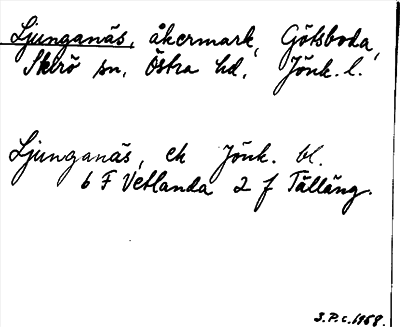 Ljunganäs, åkermark, Götsboda,
Skirö sn. Östra hd. Jönk. l.
Ljunganäs, ek Jönk. bl.
6 F Vetlanda 2 f Tälläng.
S.P.c. 1968.